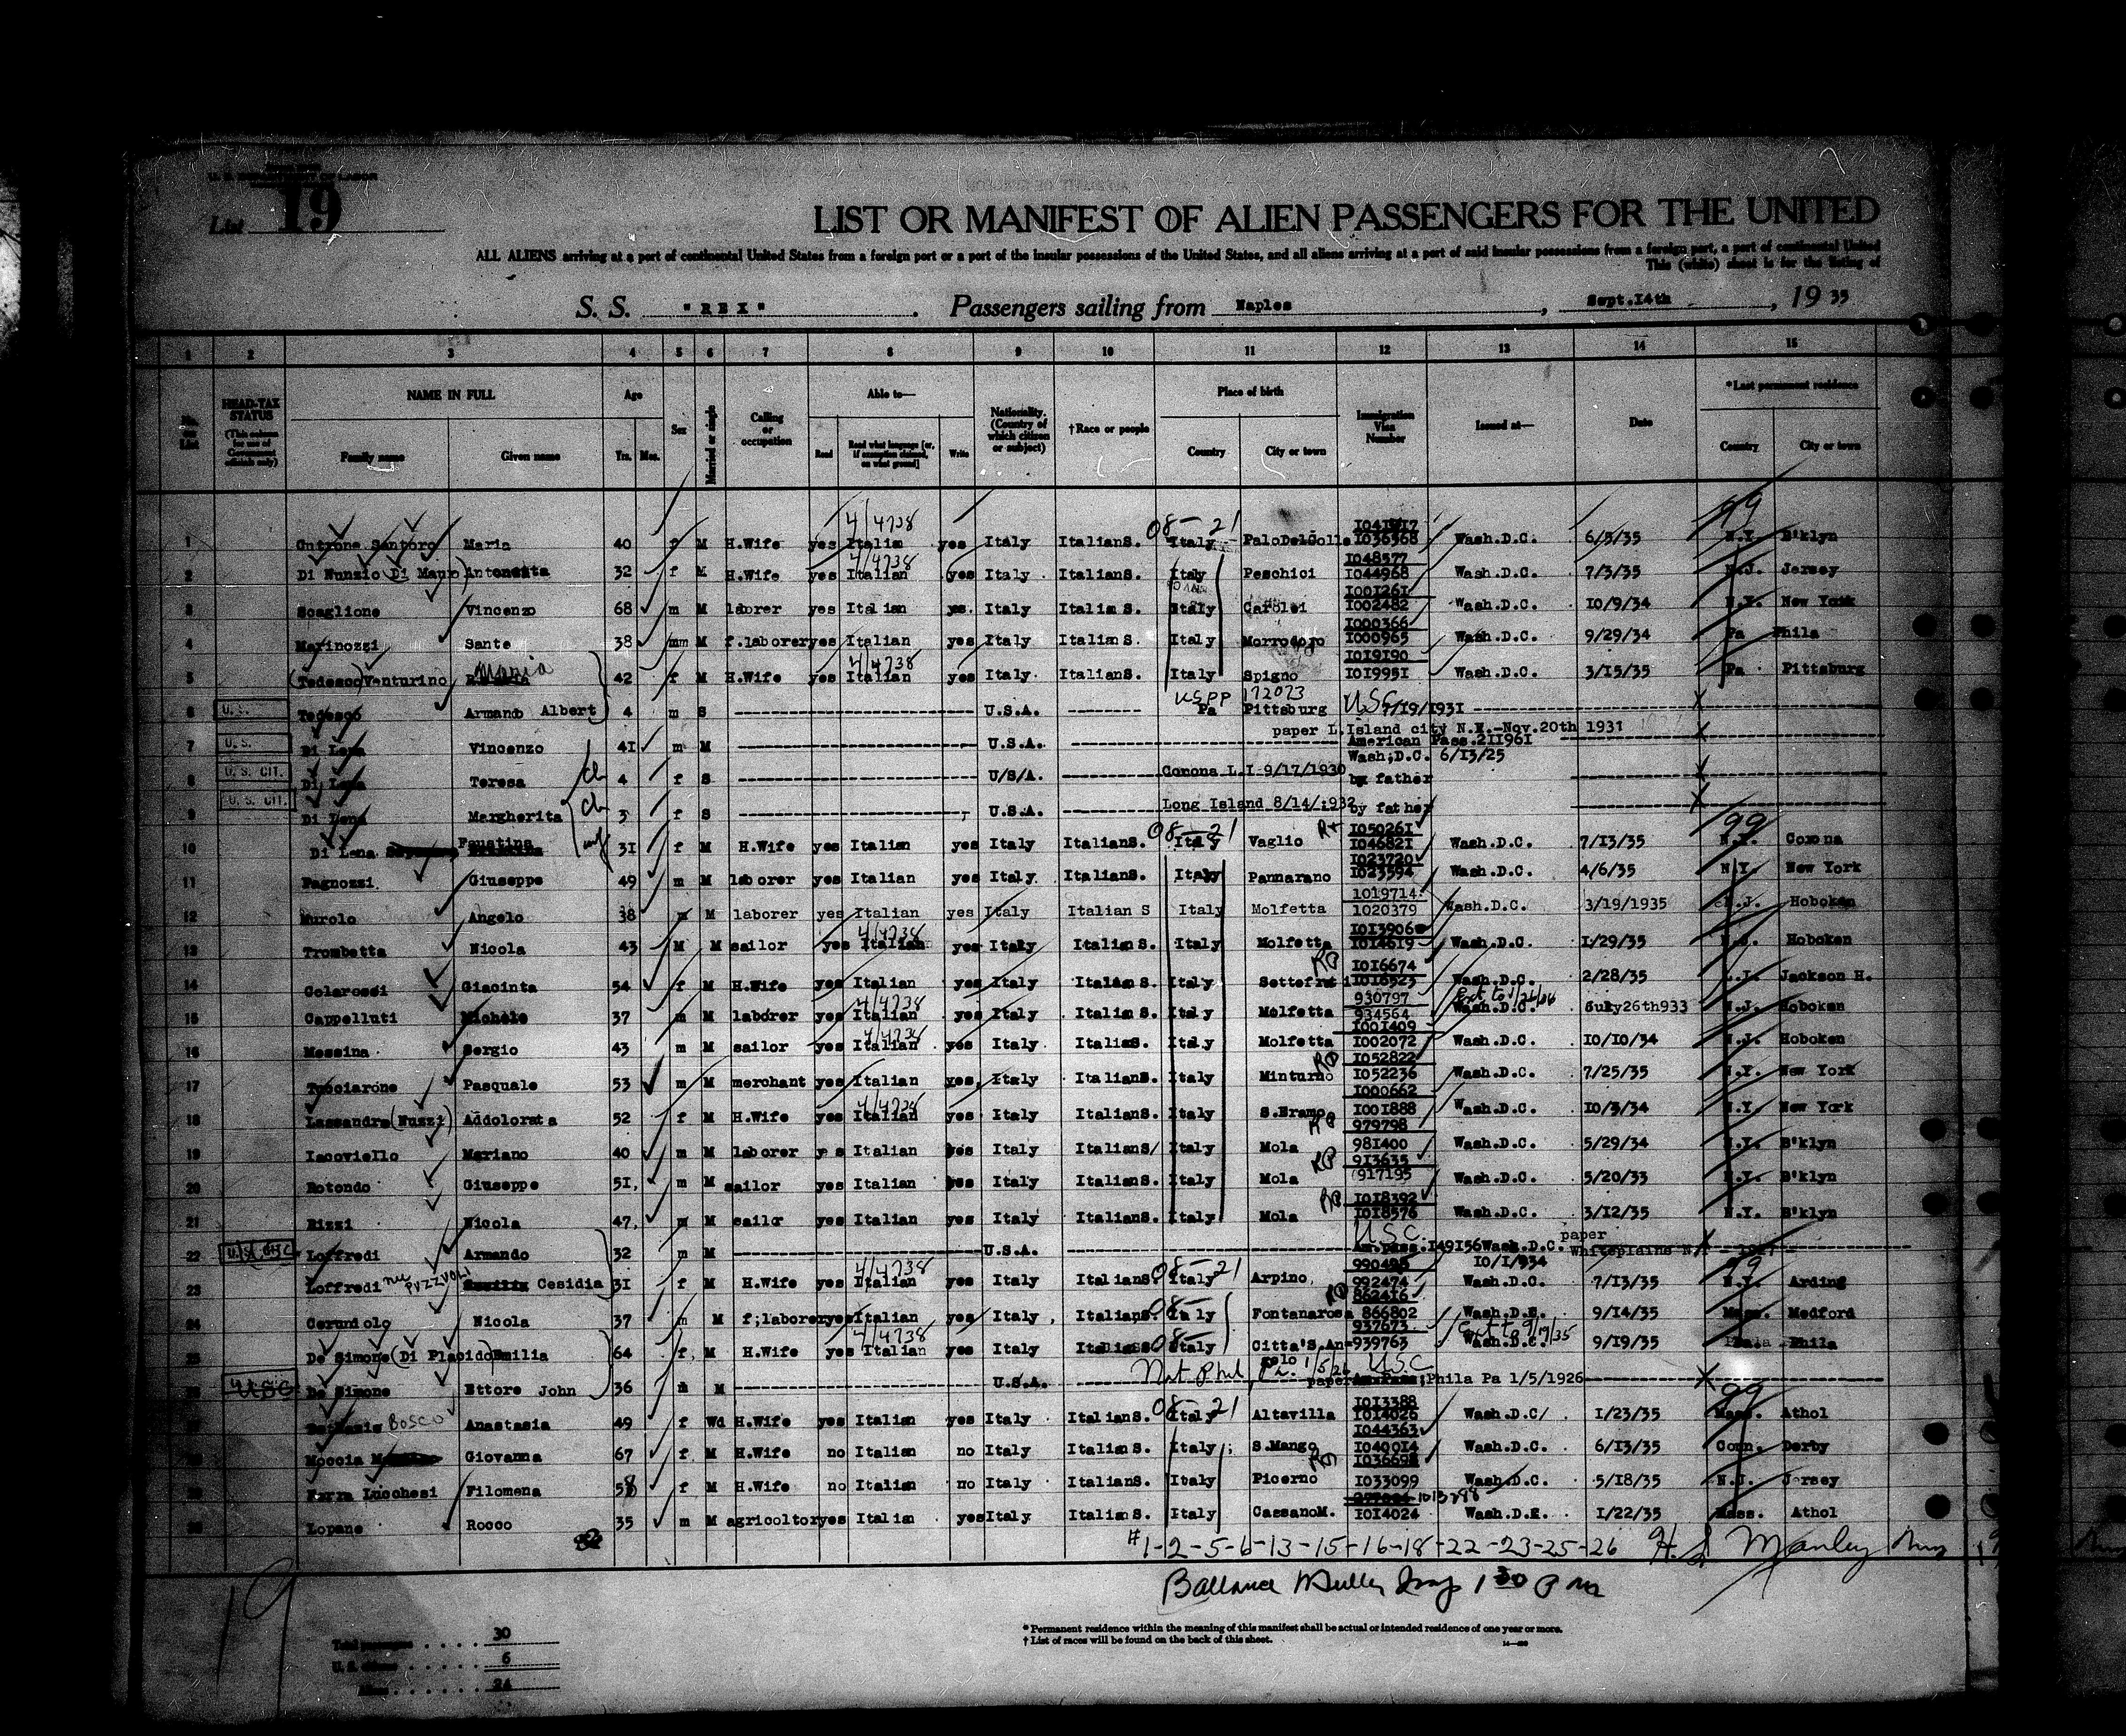 U. S. DEPARTMENT OF LABOR
List 19
LIST OR MANIFEST OF ALIEN PASSENGERS FOR THE UNITED
ALL ALIENS arriving at a port of continental United States from a foreign port or a port of the insular possessions of the United States, and all aliens arriving at a port of said insular possessions from a foreign port, a port of continental United
This (white) sheet is for the listing of
S. S. "REX". Passengers sailing from Naples, Sept.14th, 19 35
1 2 3 4 5 6 7 8 9 10 11 12 13 14 15
HEAD-TAX STATUS (This column for use of Government officials only) NAME IN FULL Family name Given name Age Yrs. Mos. Sex Married or single Calling or occupation Able to— Read Read what language [or, if exemption claimed, on what ground] Write Nationality. (Country of which citizen or subject) †Race or people Place of birth Country City or town Immigration Visa Number Issued at— Date *Last permanent residence Country City or town
4/4738 08- 21 99
1 Cutrone Santoro Maria 40 f M H.Wife yes Italian yes Italy ItalianS. Italy PaloDelColle 1036368 Wash.D.C. 6/5/35 N.Y. B'klyn
4/4738 1048577
2 Di Nunzio (Di Mauro) Antonetta 32 f M H.Wife yes Italian yes Italy ItalianS. Italy Peschici 1044968 Wash.D.C. 7/3/35 N.J. Jersey
1001261
3 Scaglione Vincenzo 68 m M laborer yes Italian yes. Italy Italian S. Italy Carolei 1002482 Wash.D.C. 10/9/34 N.Y. New York
1000366
4 Marinozzi Sante 38 mm M f.laborer yes Italian yes Italy Italian S. Italy 1000965 Wash.D.C. 9/29/34 Pa Phila
Maria 4/4738 1019190
5 (Tedesco) Venturino 42 f M H.Wife yes Italian yes Italy ItalianS. Italy Spigno 1019951 Wash.D.C. 3/15/35 Pa Pittsburg
USPP 172023 USC
6 U.S. Tedesco Armando Albert 4 m S U.S.A. Pa Pittsburg 7/19/1931 X
paper L.Island city N.Y.-Nov.20th 1931
7 U.S. Di Lena Vincenzo 41 m M U.S.A. American Pass.211961 X
Wash;D.C. 6/13/25
8 U.S. CIT. Di Lena Teresa 4 f S U/S/A. Corona L.I 9/17/1930 by father X
9 U.S. CIT. Di Lena Margherita 3 f S U.S.A. Long Island 8/14/1932 by father X
08-21 1050261 99
10 Di Lena Faustina 31 f M H.Wife yes Italian yes Italy ItalianS. Italy Vaglio 1046821 Wash.D.C. 7/13/35 N.Y. Corona
1023720
11 Pagnozzi Giuseppe 49 m M laborer yes Italian yes Italy ItalianS. Italy Pannarano 1023594 Wash.D.C. 4/6/35 N.Y. New York
1019714
12 Murolo Angelo 38 m M laborer yes Italian yes Italy Italian S Italy Molfetta 1020379 Wash.D.C. 3/19/1935 N.J. Hoboken
4/4738 1013906
13 Trombetta Nicola 43 M M sailor yes Italian yes Italy Italian S. Italy Molfetta 1014619 Wash.D.C. 1/29/35 N.J. Hoboken
1016674
14 Colarossi Giacinta 54 f M H.Wife yes Italian yes Italy Italian S. Italy Settefrati 1016525 Wash.D.C. 2/28/35 L.I. Jackson H.
4/4738 930797
15 Cappelluti Michele 37 m M laborer yes Italian yes Italy Italian S. Italy Molfetta 934564 Wash.D.C. July26th933 N.J. Hoboken
4/4738 1001409
16 Messina Sergio 43 m M sailor yes Italian yes Italy ItaliaS. Italy Molfetta 1002072 Wash.D.C. 10/10/34 N.J. Hoboken
1052822
17 Tucciarone Pasquale 53 m M merchant yes Italian yes, Italy ItalianS. Italy Minturno 1052236 Wash.D.C. 7/25/35 N.Y. New York
4/4738 1000662
18 Lassandro (Nuzzi) Addolorata 52 f M H.Wife yes Italian yes Italy ItalianS. Italy S.Eramo 1001888 Wash.D.C. 10/3/34 N.Y. New York
979798
19 Iacoviello Mariano 40 m M laborer yes Italian yes Italy ItalianS/ Italy Mola 981400 Wash.D.C. 5/29/34 N.Y. B'klyn
913635
20 Rotondo Giuseppe 51, m M sailor yes Italian yes Italy ItalianS. Italy Mola 917195 Wash.D.C. 5/20/33 N.Y. B'klyn
1018392
21 Rizzi Nicola 47, m M sailor yes Italian yes Italy ItalianS. Italy Mola 1018576 Wash.D.C. 3/12/35 N.Y. B'klyn
USC paper
22 Loffredi Armando 32 m M U.S.A. Am.pass.149156Wash.D.C. Whiteplains N.Y - 1927
4/4738 08-21 10/1/934 99
23 Loffredi PUZZUOLI Cesidia 31 f M H.Wife yes Italian yes Italy ItalianS. Italy Arpino, 992474 Wash.D.C. 7/13/35 N.Y. Arding
862416
24 Cerundolo Nicola 37 m M f;laborer yes Italian yes Italy ItalianS. Italy Fontanarosa 866802 Wash.D.E. 9/14/35 Mass. Medford
4/4738 08- 937673 Ext to 9/19/35
25 De Simone (Di Placido) Emilia 64 f. M H.Wife yes Italian yes Italy ItalianS. Italy Citta'S.An- 939763 Wash.D.C. 9/19/35 Phila
gelo 1/5/26 USC
26 USC De Simone Ettore John 36 m M U.S.A. paper Am.Pass; Phila Pa 1/5/1926 X
1013388 99
27 BOSCO Anastasia 49 f Wd H.Wife yes Italian yes Italy ItalianS. 08- Italy 21 Altavilla 1014026 Wash.D.C/ 1/23/35 Mass. Athol
1044363
28 Moccia Giovanna 67 f M H.Wife no Italian no Italy Italian S. Italy S.Mango 1040014 Wash.D.C. 6/13/35 Conn. Derby
1036698
29 Lucchesi Filomena 58 f M H.Wife no Italian no Italy ItalianS. Italy Picerno 1033099 Wash.D.C. 5/18/35 N.J. Jersey
1013798
30 Lopane Rocco 35 m M agricoltor yes Italian yes Italy Italian S. Italy CassanoM. 1014024 Wash.D.E. 1/22/35 Mass. Athol
#1-2-5-6-13-15-16-18-22-23-25-26 H. S Manley
1 30 P m
19
Total passengers 30
U. S. citizens 6
Aliens 24
* Permanent residence within the meaning of this manifest shall be actual or intended residence of one year or more.
† List of races will be found on the back of this sheet.